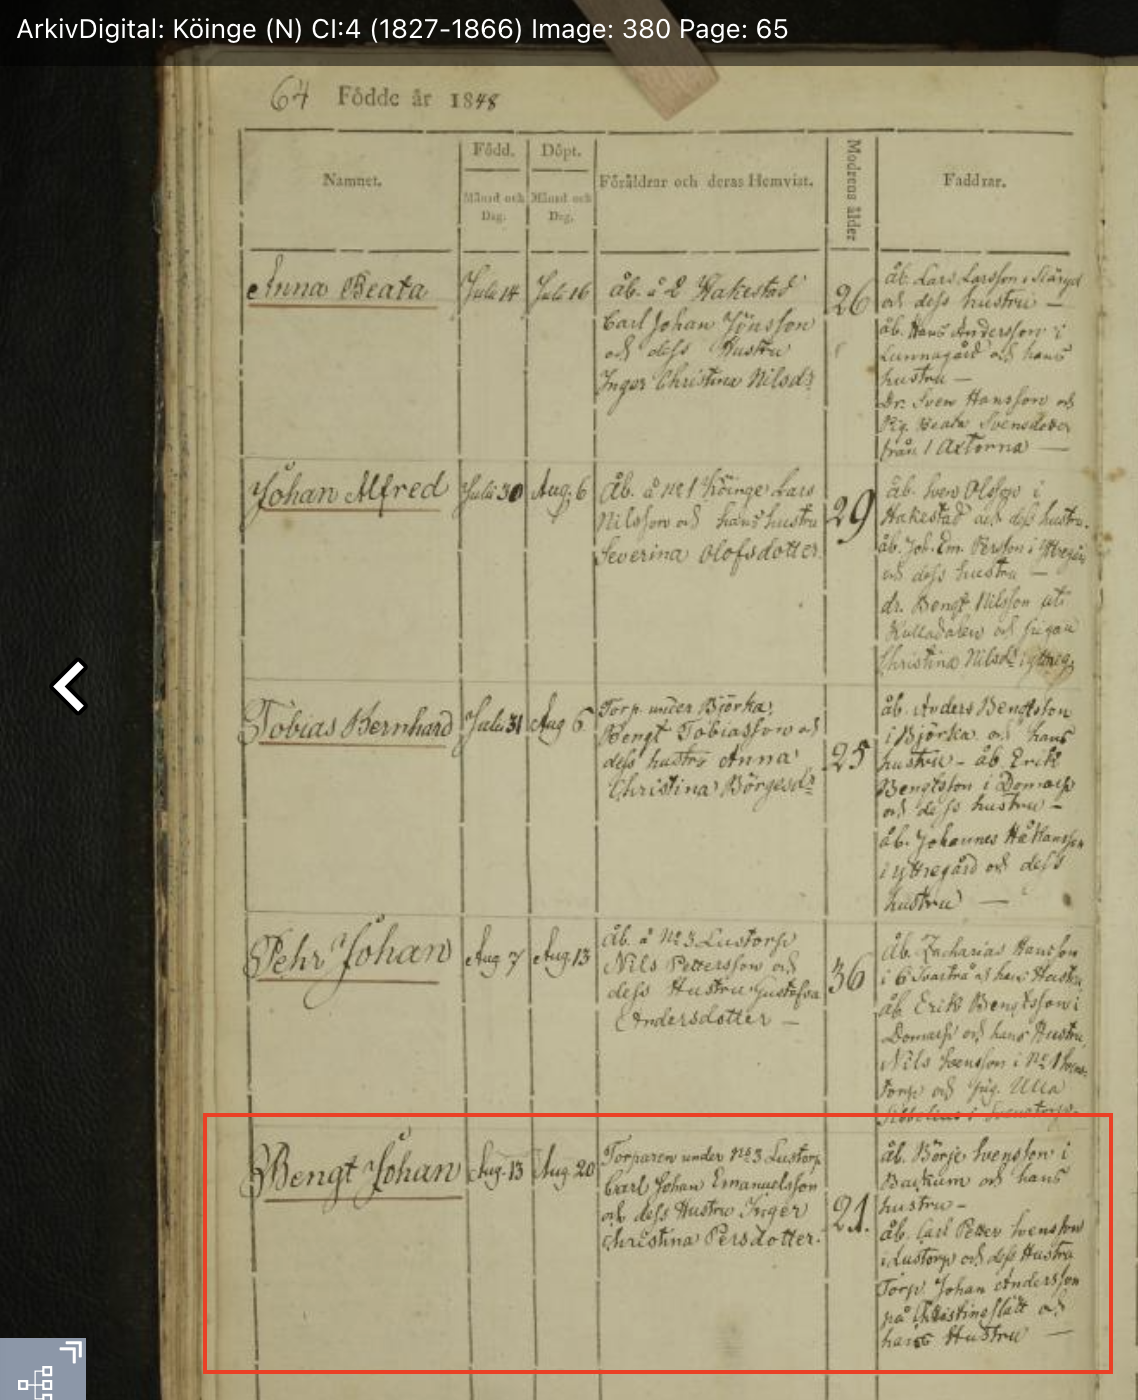 ArkivDigital: Köinge (N) CI:4 (1827-1866) Image: 380 Page: 65
64 Födde år 1848
Namnet.
Född.
Månd och
Dag.
Döpt.
Månd och
Dag.
Föräldrar och deras Hemvist.
Modrens ålder
Faddrar.
Anna Beata
Juli 14
Juli 16
åb. å 2 Hakestad
Carl Johan Jönsson
och dess Hustru
Inger Christina Nilsdr
26
åb. Lars Larsson i
och dess hustru —
åb. Hans Andersson i
Lunnagård och hans
hustru —
Dr. Sven Hansson och
Pig. Beata Svensdotter
från 1 Axtorna —
Johan Alfred
Juli 30
Aug. 6
Åb. å No 1 Köinge Lars
Nilsson och hans hustru
Severina Olofsdotter
29
åb. Sven Olsson i
Hakestad och dess hustru.
åb. Joh. Em. Persson i
och dess hustru —
dr. Bengt Nilsson uti
Kulladalen och pigan
Christina Nilsdr i
Tobias Bernhard
Juli 31
Aug 6
Torp. under Björka,
Bengt Tobiasson och
dess hustru Anna
Christina Börgesdr
25
åb. Anders Bengtsson
i Björka och hans
hustru - åb. Erik
Bengtsson i Domarp
och dess hustru -
åb. Johannes Håkansson
i yttregård och dess
hustru —
Pehr Johan
Aug 7
Aug. 13
Åb. å No 3 Lustorp
Nils Pettersson och
dess Hustru Gustafva
Andersdotter —
36
Åb. Zacharias Hansson
i 6 Svartrå och hans Hustru,
åb. Erik Bengtsson i
Domarp och hans Hustru,
Nils Svensson i No 1 Svens-
torp och pig. Ulla
i Svenstorp.
Bengt Johan
Aug. 13
Aug. 20
Torparen under No 3 Lustorp
Carl Johan Emanuelsson
och dess Hustru Inger
Christina Persdotter.
21.
åb. Börje Svensson i
Backum och hans
hustru -
åb. Carl Petter Svensson
i Lustorp och dess Hustru
Torp. Johan Andersson
på Christineslätt och
hans Hustru —